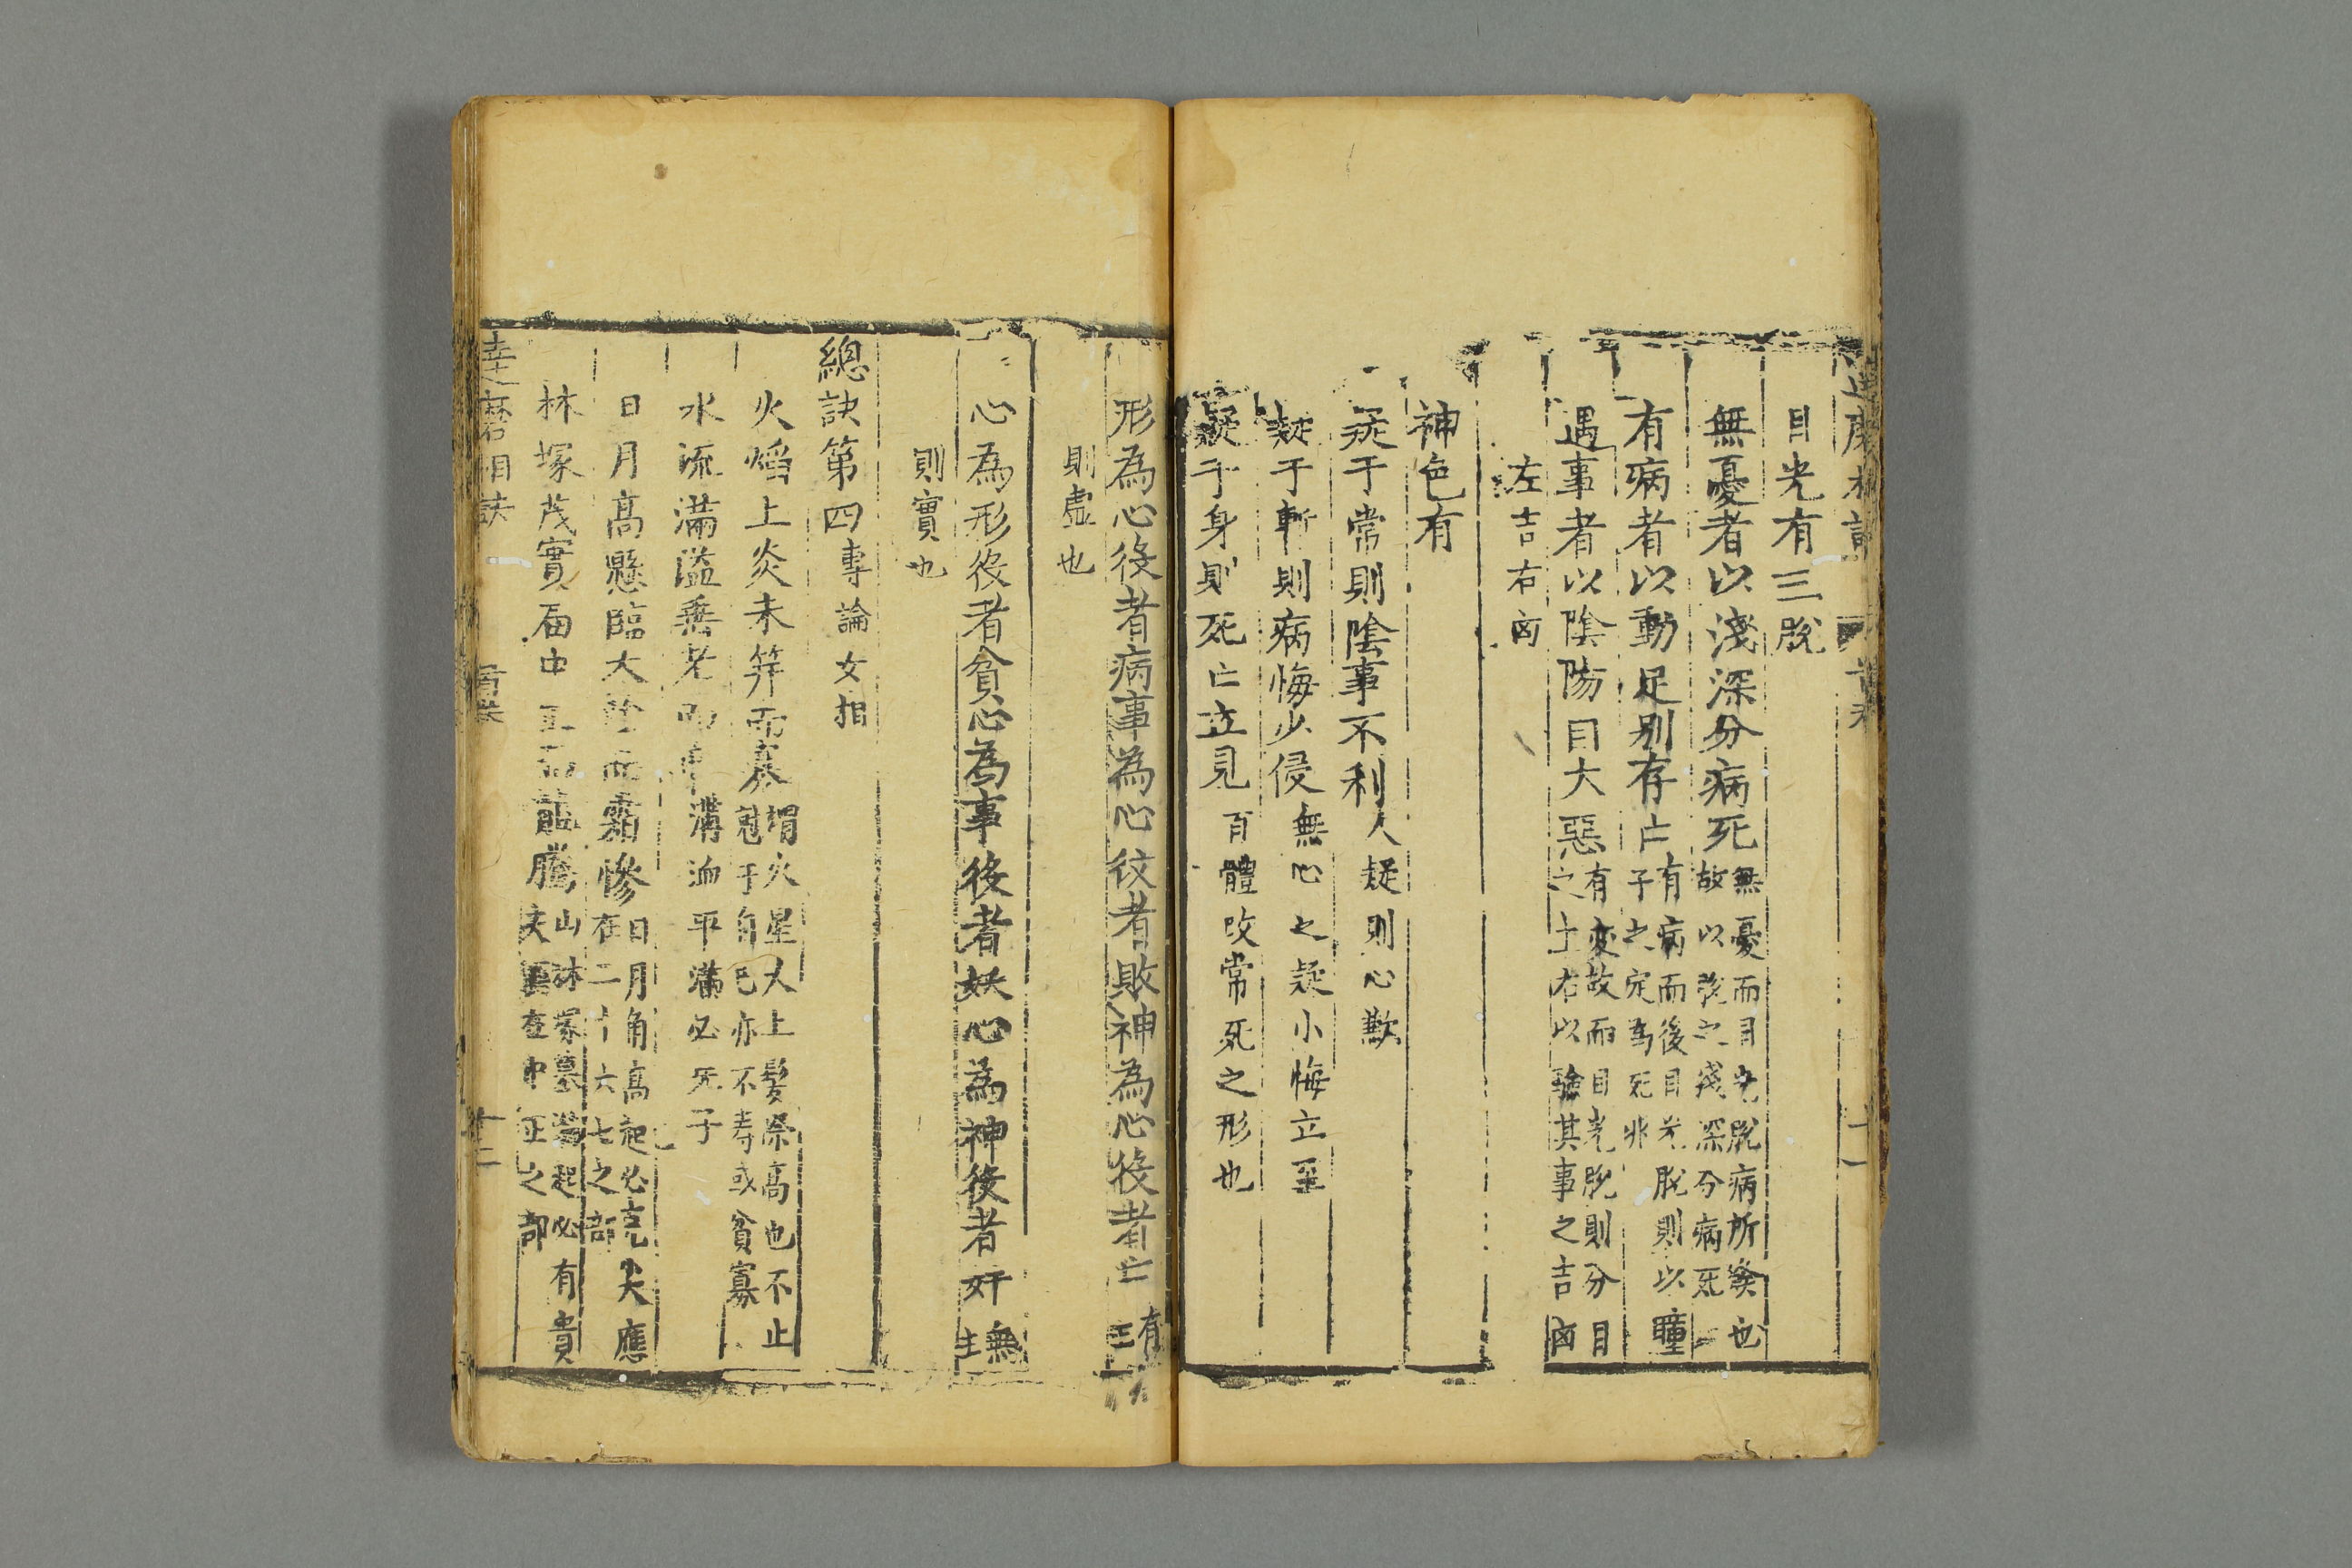 目光有三脫
無憂者以淺深分病死無憂而目光脫病所候也
故以脫之淺深分病死
有病者以動足别存亡有病而後目光脫則以瞳
子之定為死非
遇事者以陰陽目大惡有変故而目光脫則分目
之士右以驗其事之吉凶
左吉右凶
神色有
疑于常則陰事不利人疑則心歉
疑于斬則病悔少侵無心之疑小悔立至
疑于身則死亡立見百體改常死之形也
形為心役者病事為心役者敗神為心役者亡有
主
則虛也
心為形役者貧心為事役者妖心為神役者奸無
主
則實也
總訣第四專論女相
火焰上炎未笄而寡謂火星人上髮際高也不止
尅于自己亦不寿或貧寡
水流滿溢垂老溝洫平滿必死子
日月高懸臨大霜慘日月角高起必尅夫應
在二十六七之部
林塚茂實居中騰山林塚墓滿起必有貴
夫裏查中正之部
達磨相訣 首卷 十二